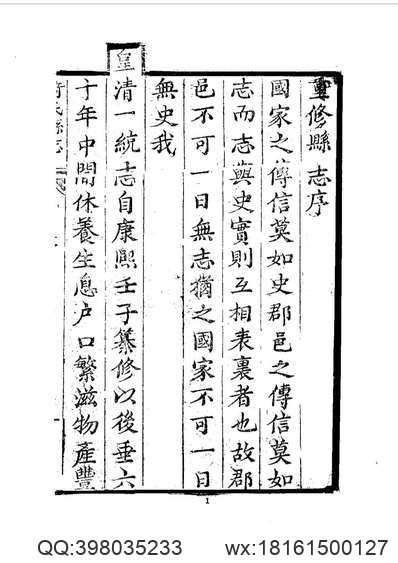 重修縣志序
國家之傳信莫如史郡邑之傳信莫如
志而志與史實則互相表裏者也故郡
邑不可一日無志猶之國家不可一日
無史我
皇清一統志自康熙壬子纂修以後垂六
十年中間休養生息户口繁滋物產豐
縣志
1
QQ:398035233 wx:18161500127